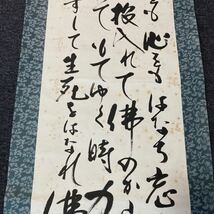 も心をもはなち忘
投入れて佛のか
もてゆく時力
ずして生死をはなれ佛